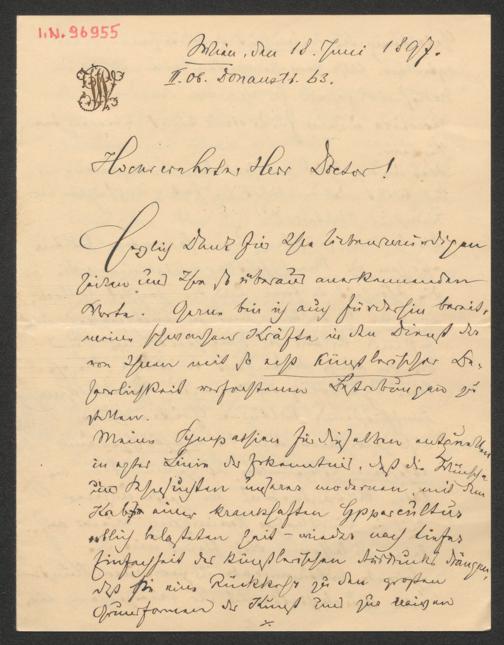 I.N. 96955
Wien, den 18. Juni 1897.
II. Ob. Donaustr. 63.
Hochverehrter Herr Doctor!
Herzlich Dank für Ihre liebenswürdigen
Zeilen und Ihre so überaus anerkennenden
Worte. Gerne bin ich auch fürderhin bereit,
meine schwachen Kräfte in den Dienst der
von Ihnen mit so echt künstlerischer Be-
harrlichkeit verfochtenen Bestrebungen zu
stellen.
Meine Sympathien für dieselben entquellen
in erster Linie der Erkenntnis, daß die Wünsche
und Sehnsuchten unserer modernen, mit dem
einer krankhaften Hypercultur
erblich belasteten Zeit – wieder nach tiefer
Einfachheit des künstlerischen Ausdrucks drängen,
daß sie eine Rückkehr zu den großen
Grundformen der Kunst und zur naiven